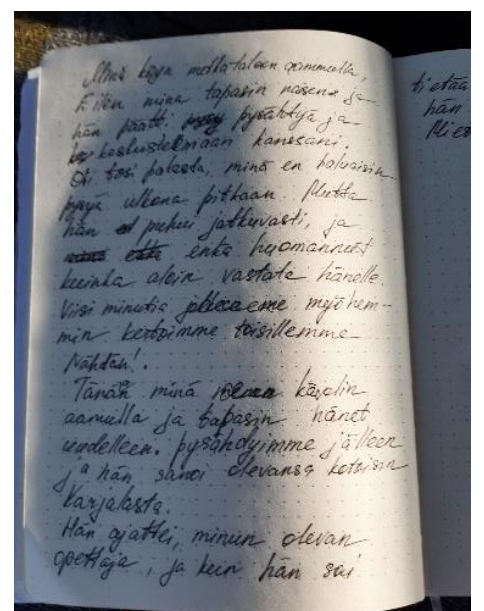 Minä käyn mettätaloon aamulla,
Eilen minä tapasin naisen ja
hän päätti pysähtyä ja
keskustelmaan kanssani.
Oli tosi palasta, minä en haluaisin
pysyä ulkona pitkään. Mutta
hän puhui jatkuvasti, ja
enkä huomannut
kuinka aloin vastata hänelle.
Viisi minutia myöhem-
min kertoimme toisillemme
Nähdän!.
Tänän minä kävelin
aamulla ja tapasin hänet
uudelleen. pysähdyimme jälleen
ja hän sanoi olevansa kotoisin
Karjalasta.
Hän ajattei, minun olevan
opettaja, ja kuin hän sai
tietää
hän
Mies